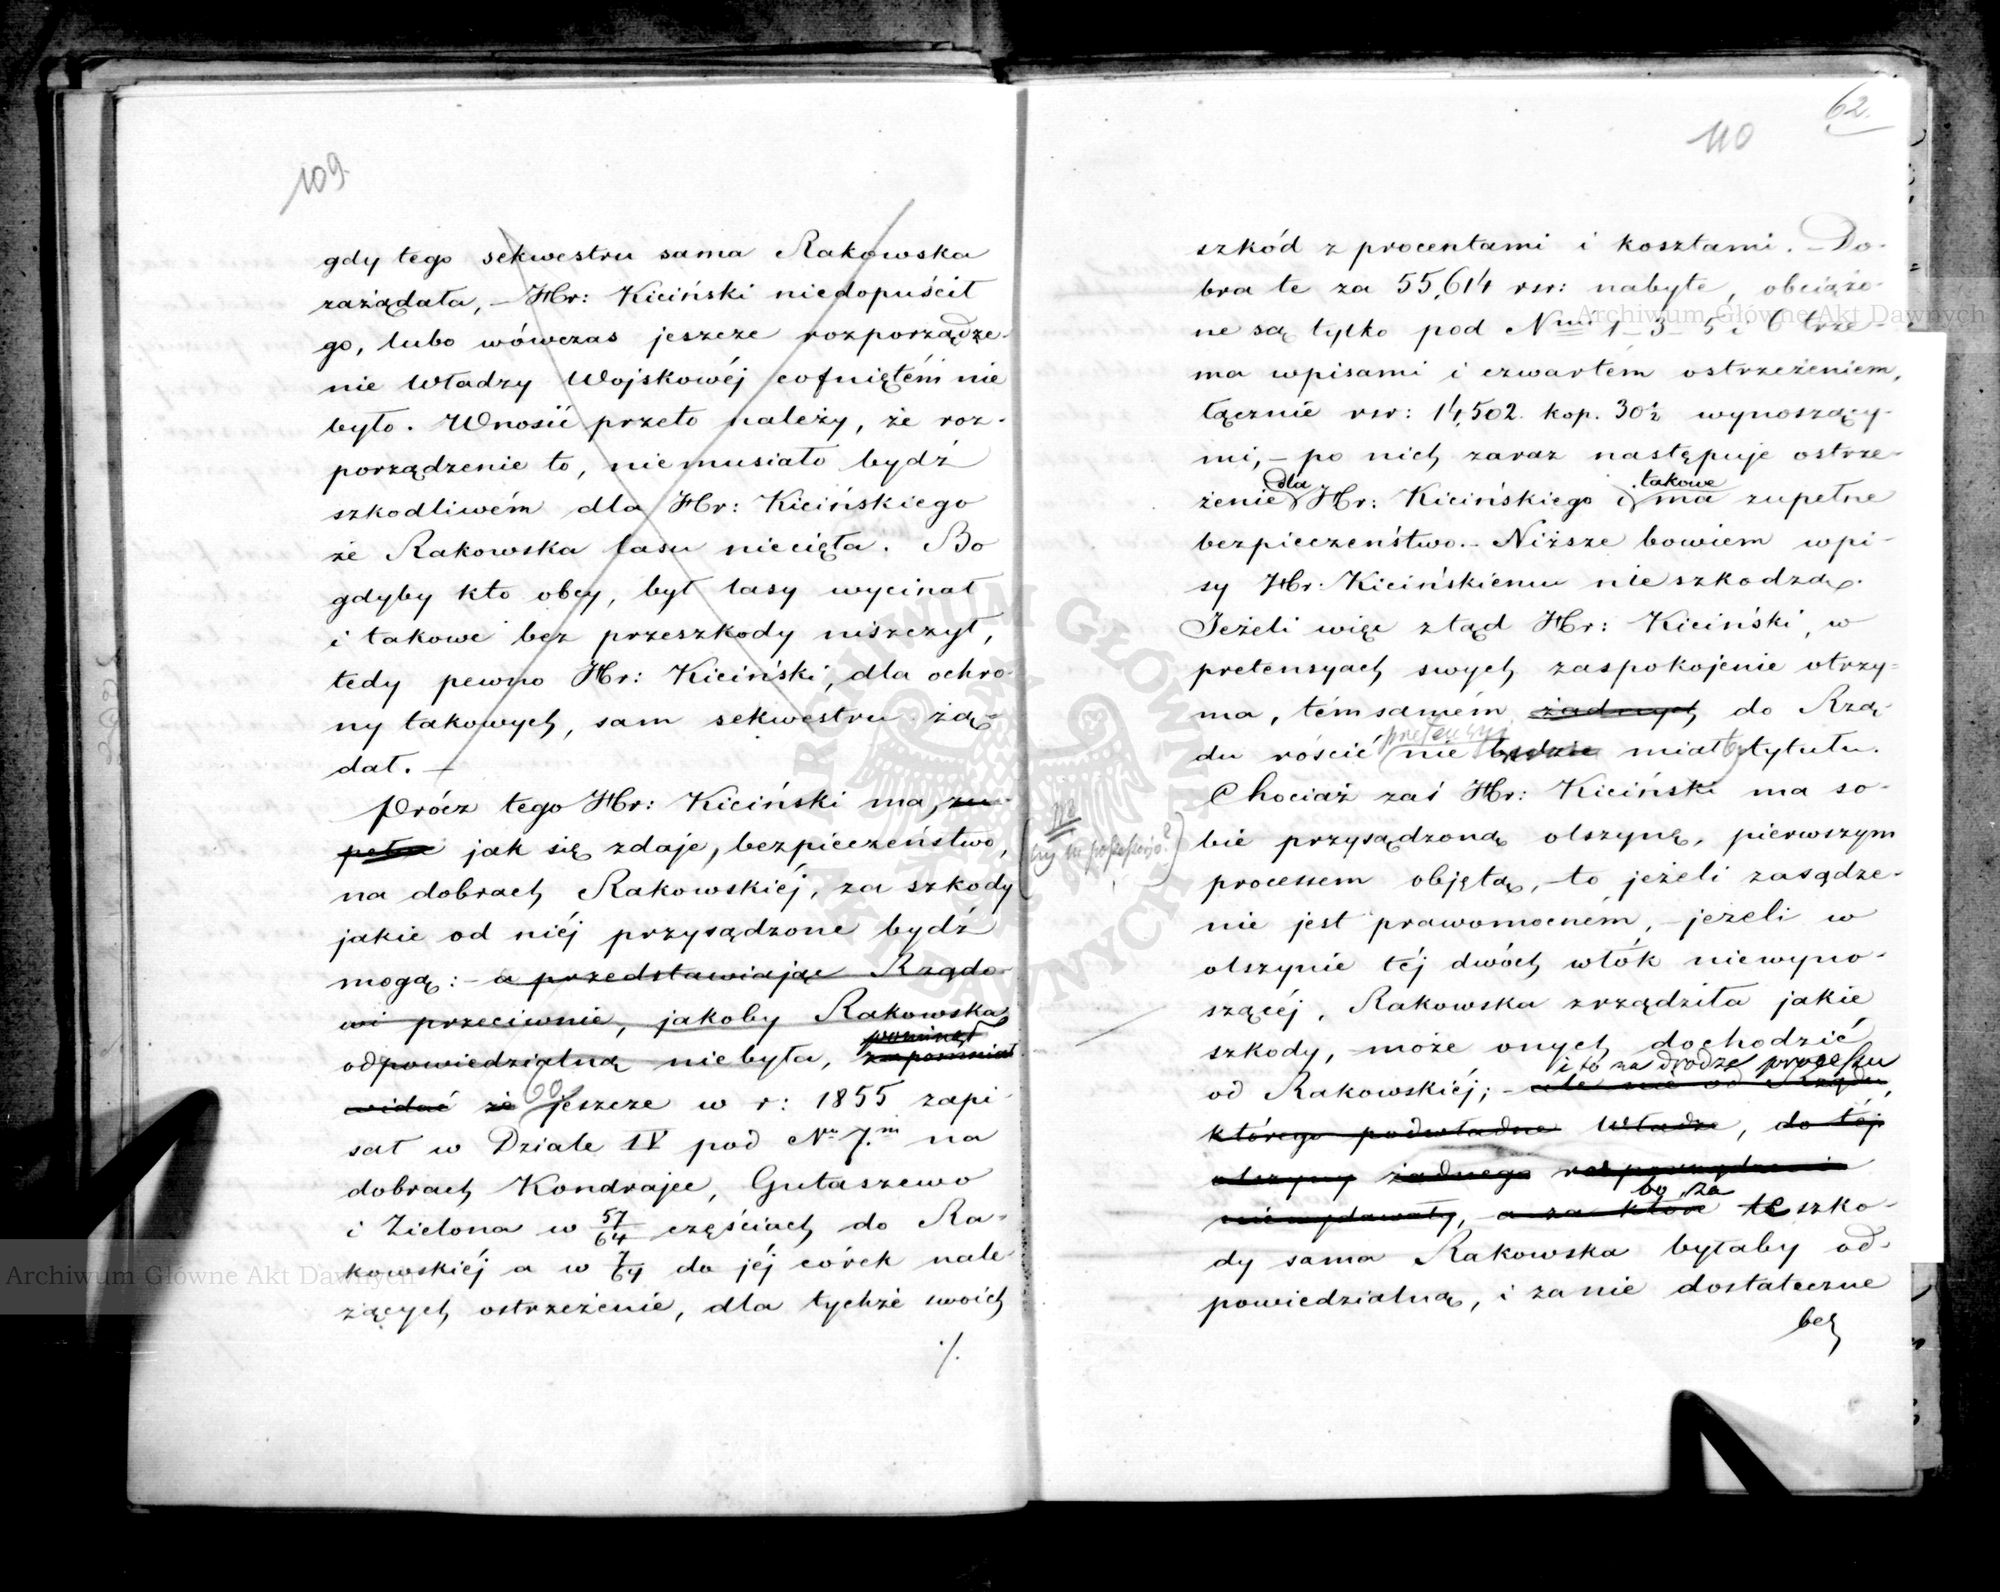 109.
gdy tego sekwestru sama Rakowska
zażądała, – Hr: Kiciński niedopuścił
go, lubo wówczas jeszcze rozporządze-
nie Władzy Wojskowéj cofniętém nie
było. Wnosić przeto należy, że roz-
porządzenie to, niemusiało bydź
szkodliwém dla Hr: Kicińskiego
że Rakowska lasu niecięła. Bo
gdyby kto obcy, był lasy wycinał
i takowe bez przeszkody niszczył,
tedy pewno Hr: Kiciński, dla ochro-
ny takowych, sam sekwestru żą-
dał. –
Prócz tego Hr: Kiciński ma, zu-
pełne jak się zdaje, bezpieczeństwo,
na dobrach Rakowskiéj, za szkody
jakie od niéj przysądzone bydź
mogą: – a przedstawiając Rządo-
wi przeciwnie, jakoby Rakowska
pominął
odpowiedzialną niebyła, zapomniał
widać że jeszcze w r: 1855 zapi-
sał w Dziale IV pod Nr 7.m na
dobrach Kondrajec, Gutaszewo
i Zielona w 57/64 częściach do Ra-
kowskiéj a w 7/64 do jéj córek nale
żących ostrzeżenie, dla tychże swoich
./.
62.
110
szkód z procentami i kosztami. – Do-
bra te za 55,614 rsr: nabyte, obciążo-
ne są tylko pod Nmi 1 – 3 – 5 i 6 trze-
ma wpisami i czwartém ostrzeżeniem,
łącznie rsr: 14,502 kop. 30½ wynoszący-
mi, – po nich zaraz następuje ostrze-
dla takowe
żenie Hr: Kicińskiego i ma zupełne
bezpieczeństwo. – Niższe bowiem wpi-
sy Hr: Kicińskiemu nie szkodzą.
Jeżeli więc ztąd Hr: Kiciński, w
pretensyach swych zaspokojenie otrzy-
ma, témsamém żadnych do Rzą-
pretensyi
du rościć nie będzie miał tytułu.
Chociaż zaś Hr: Kiciński ma so-
bie przysądzoną olszynę, pierwszym
processem objętą, – to jeżeli zasądze-
nie jest prawomocném, – jeżeli w
olszynie téj dwóch włók niewyno-
szącéj, Rakowska zrządziła jakie
szkody, – może onych dochodzić
i to na drodze processu
od Rakowskiéj; – ale nie od Rządu,
którego podwładne Władze, do téj
olszyny żadnego rozporządzenia
bo za
niewydawały, a za które te szko-
dy sama Rakowska byłaby od-
powiedzialną, i za nie dostateczne
bez
Archiwum Główne Akt Dawnych
Archiwum Główne Akt Dawnych
ARCHIWUM GŁÓWNE AKT DAWNYCH